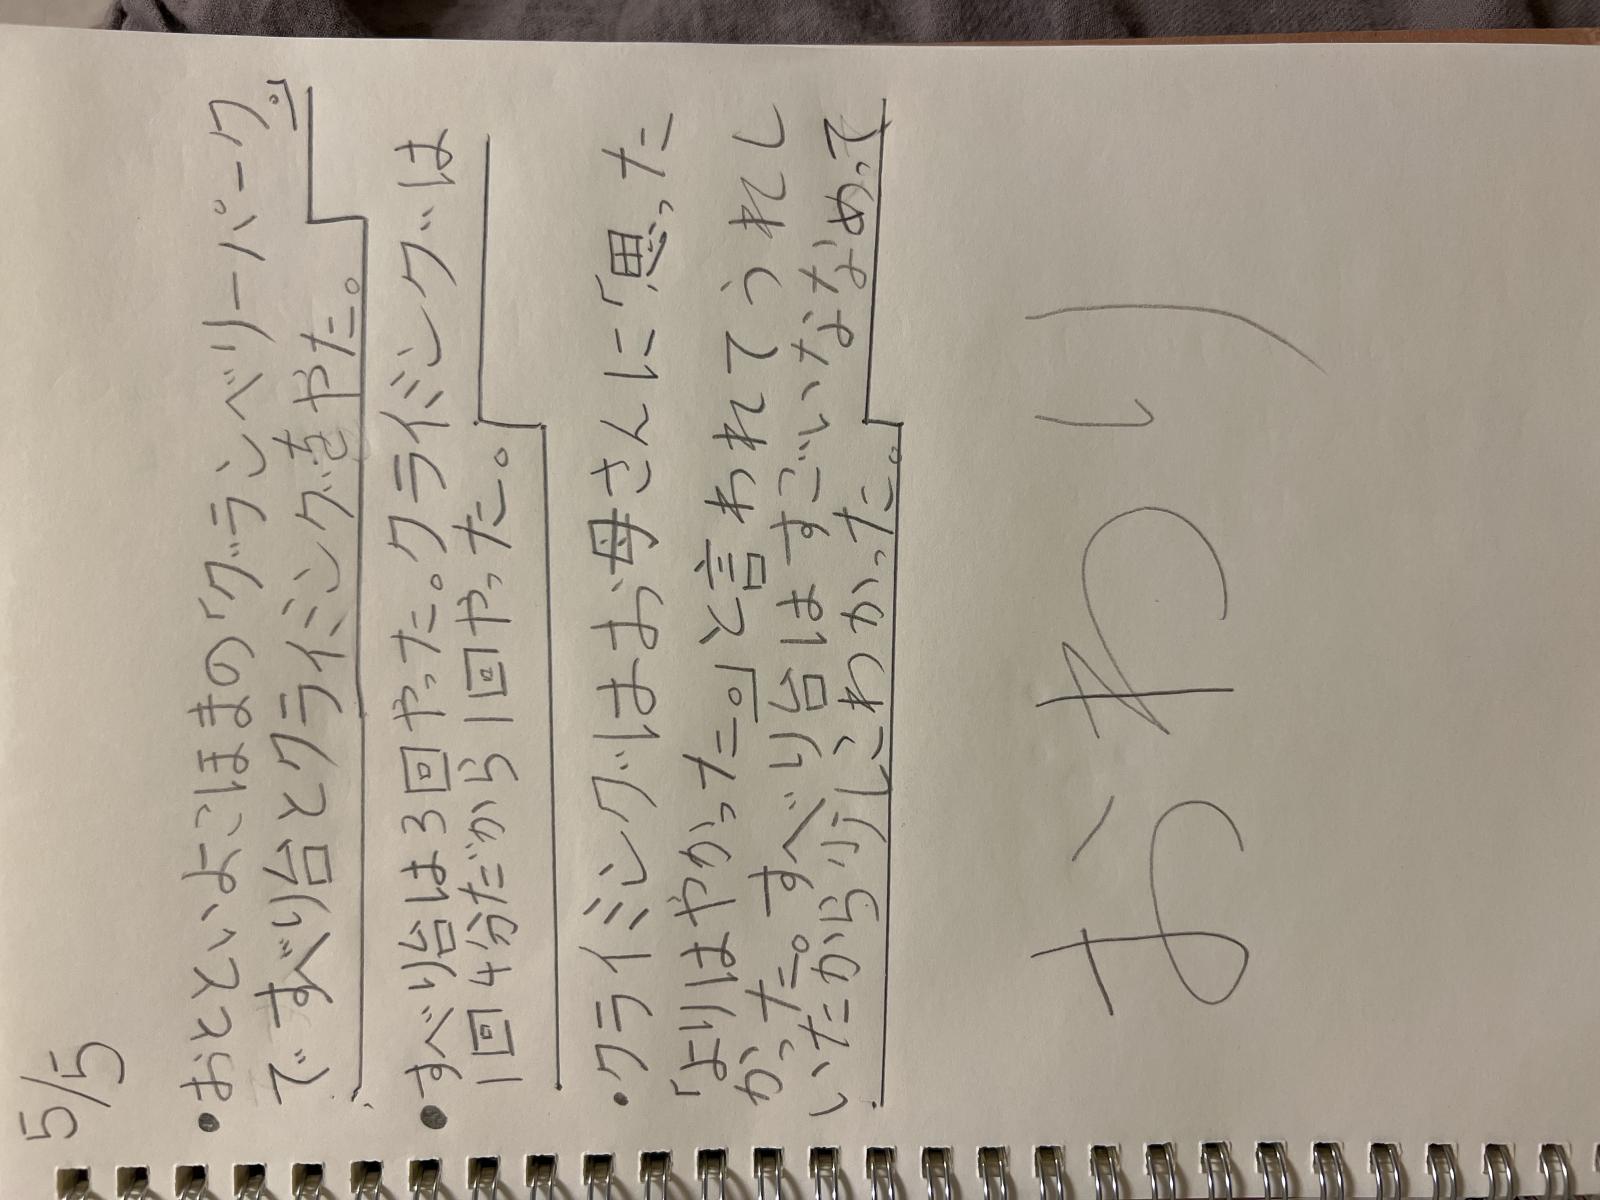 5/5
•おとといよこはまの「グランベリーパーク。」
ですべり台とクライミングをやた。
•すべり台は3回やった。クライミングは
1回4分だから1回やった。
•クライミングはお母さんに「思った
「よりはやかった。」と言われてうれし
かった。すべり台はすごいななめって
いたから少しこわかった。
おわり